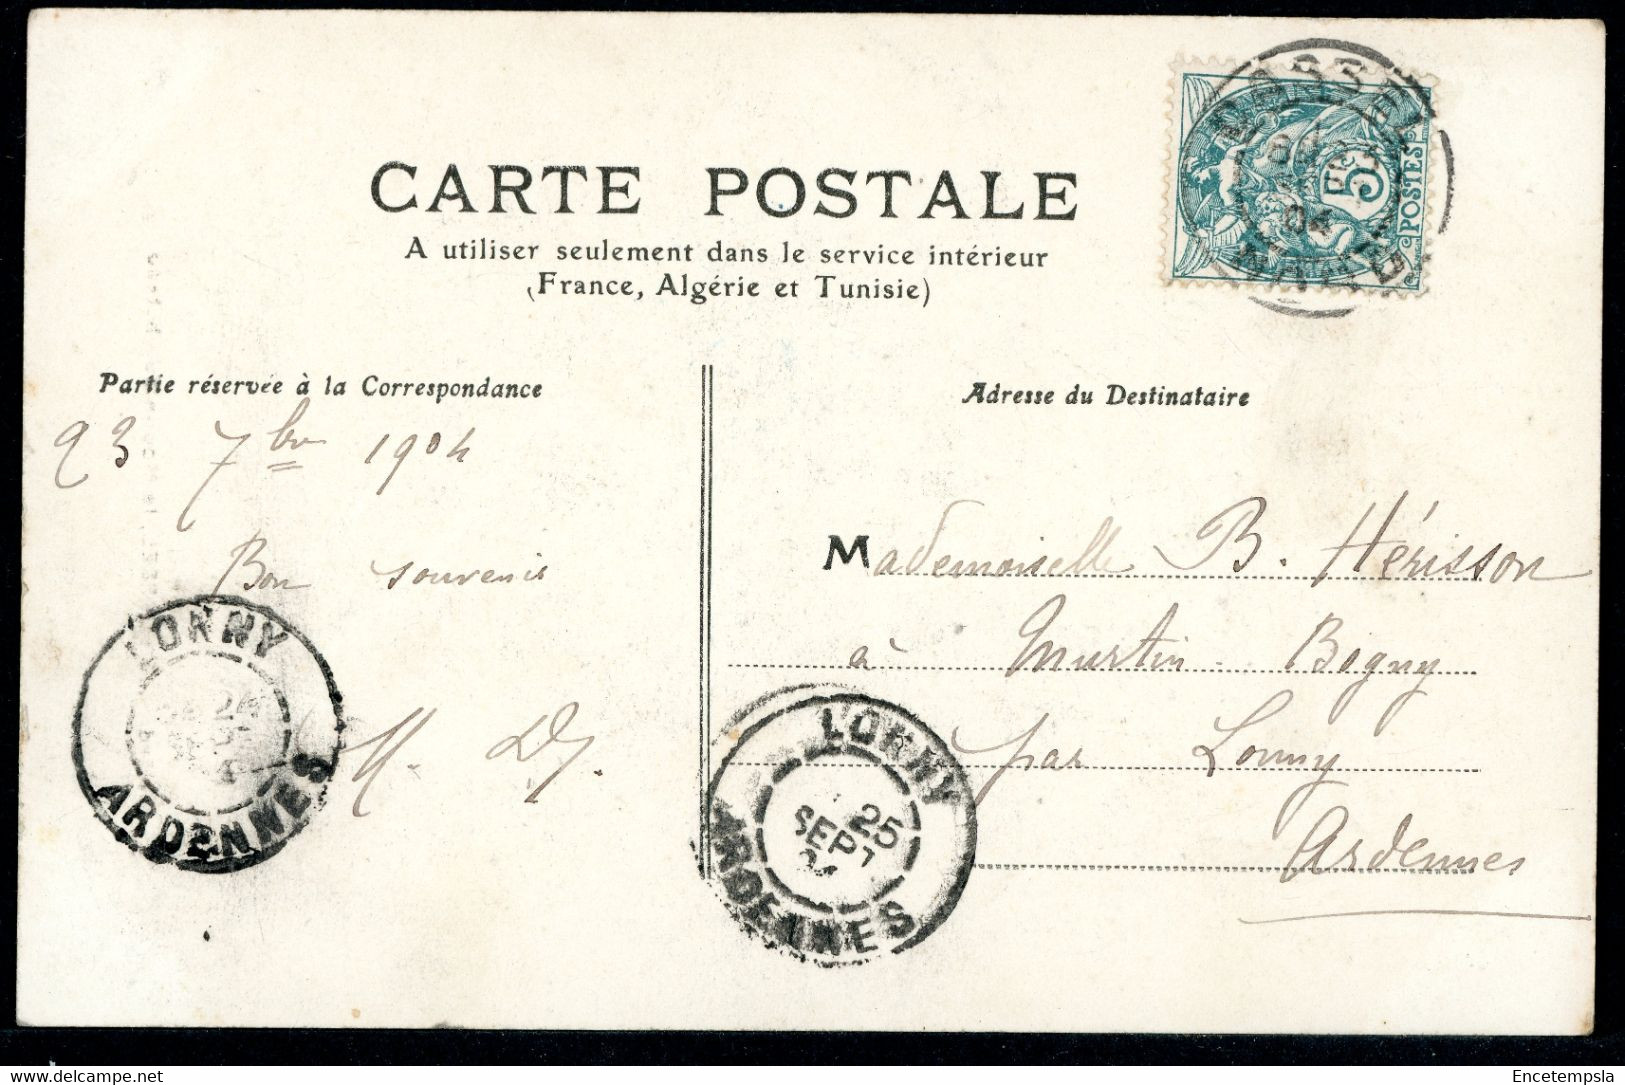 CARTE POSTALE
A utiliser seulement dans le service intérieur
(France, Algérie et Tunisie)
5c
POSTES
Partie réservée à la Correspondance
Adresse du Destinataire
23 7bre 1904
Bon souvenir
M. D.
Mademoiselle B. Hérisson
à Murtin Bogny
par Lonny
Ardennes
LONNY
24
ARDENNES
LONNY
25
SEPT
04
ARDENNES
delcampe.net
Encetempsla